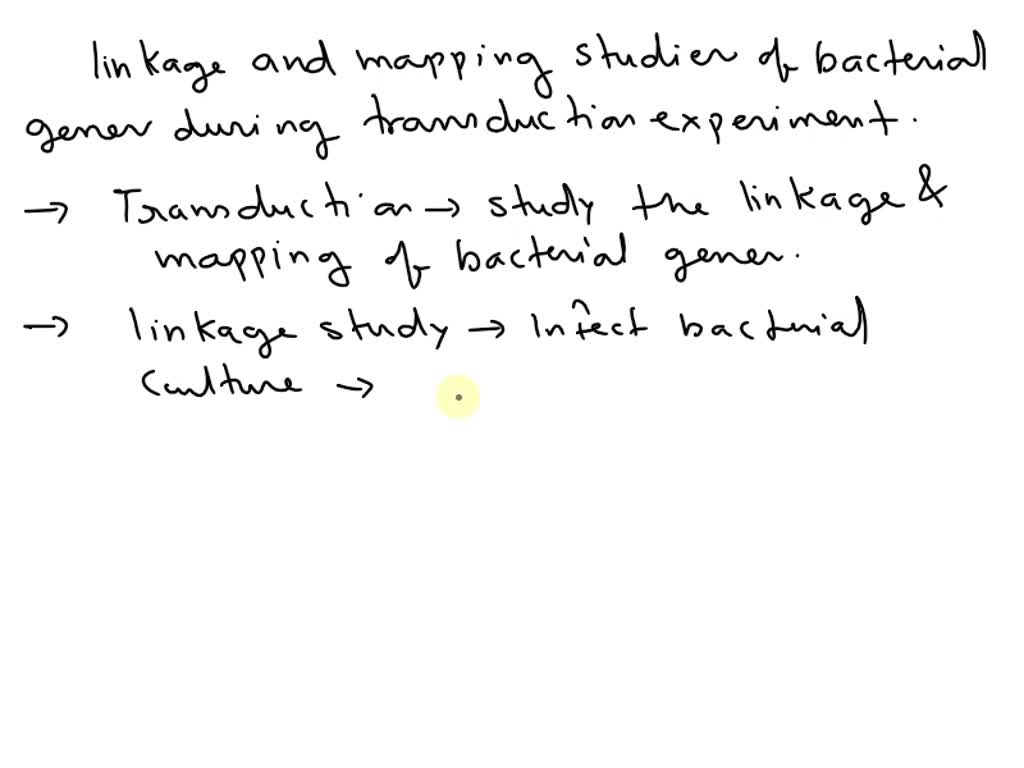 linkage and mapping studies of bacterial
genes during transduction experiment.
→ Transduction → study the linkage &
mapping of bacterial genes.
→ linkage study → Infect bacterial
Culture →